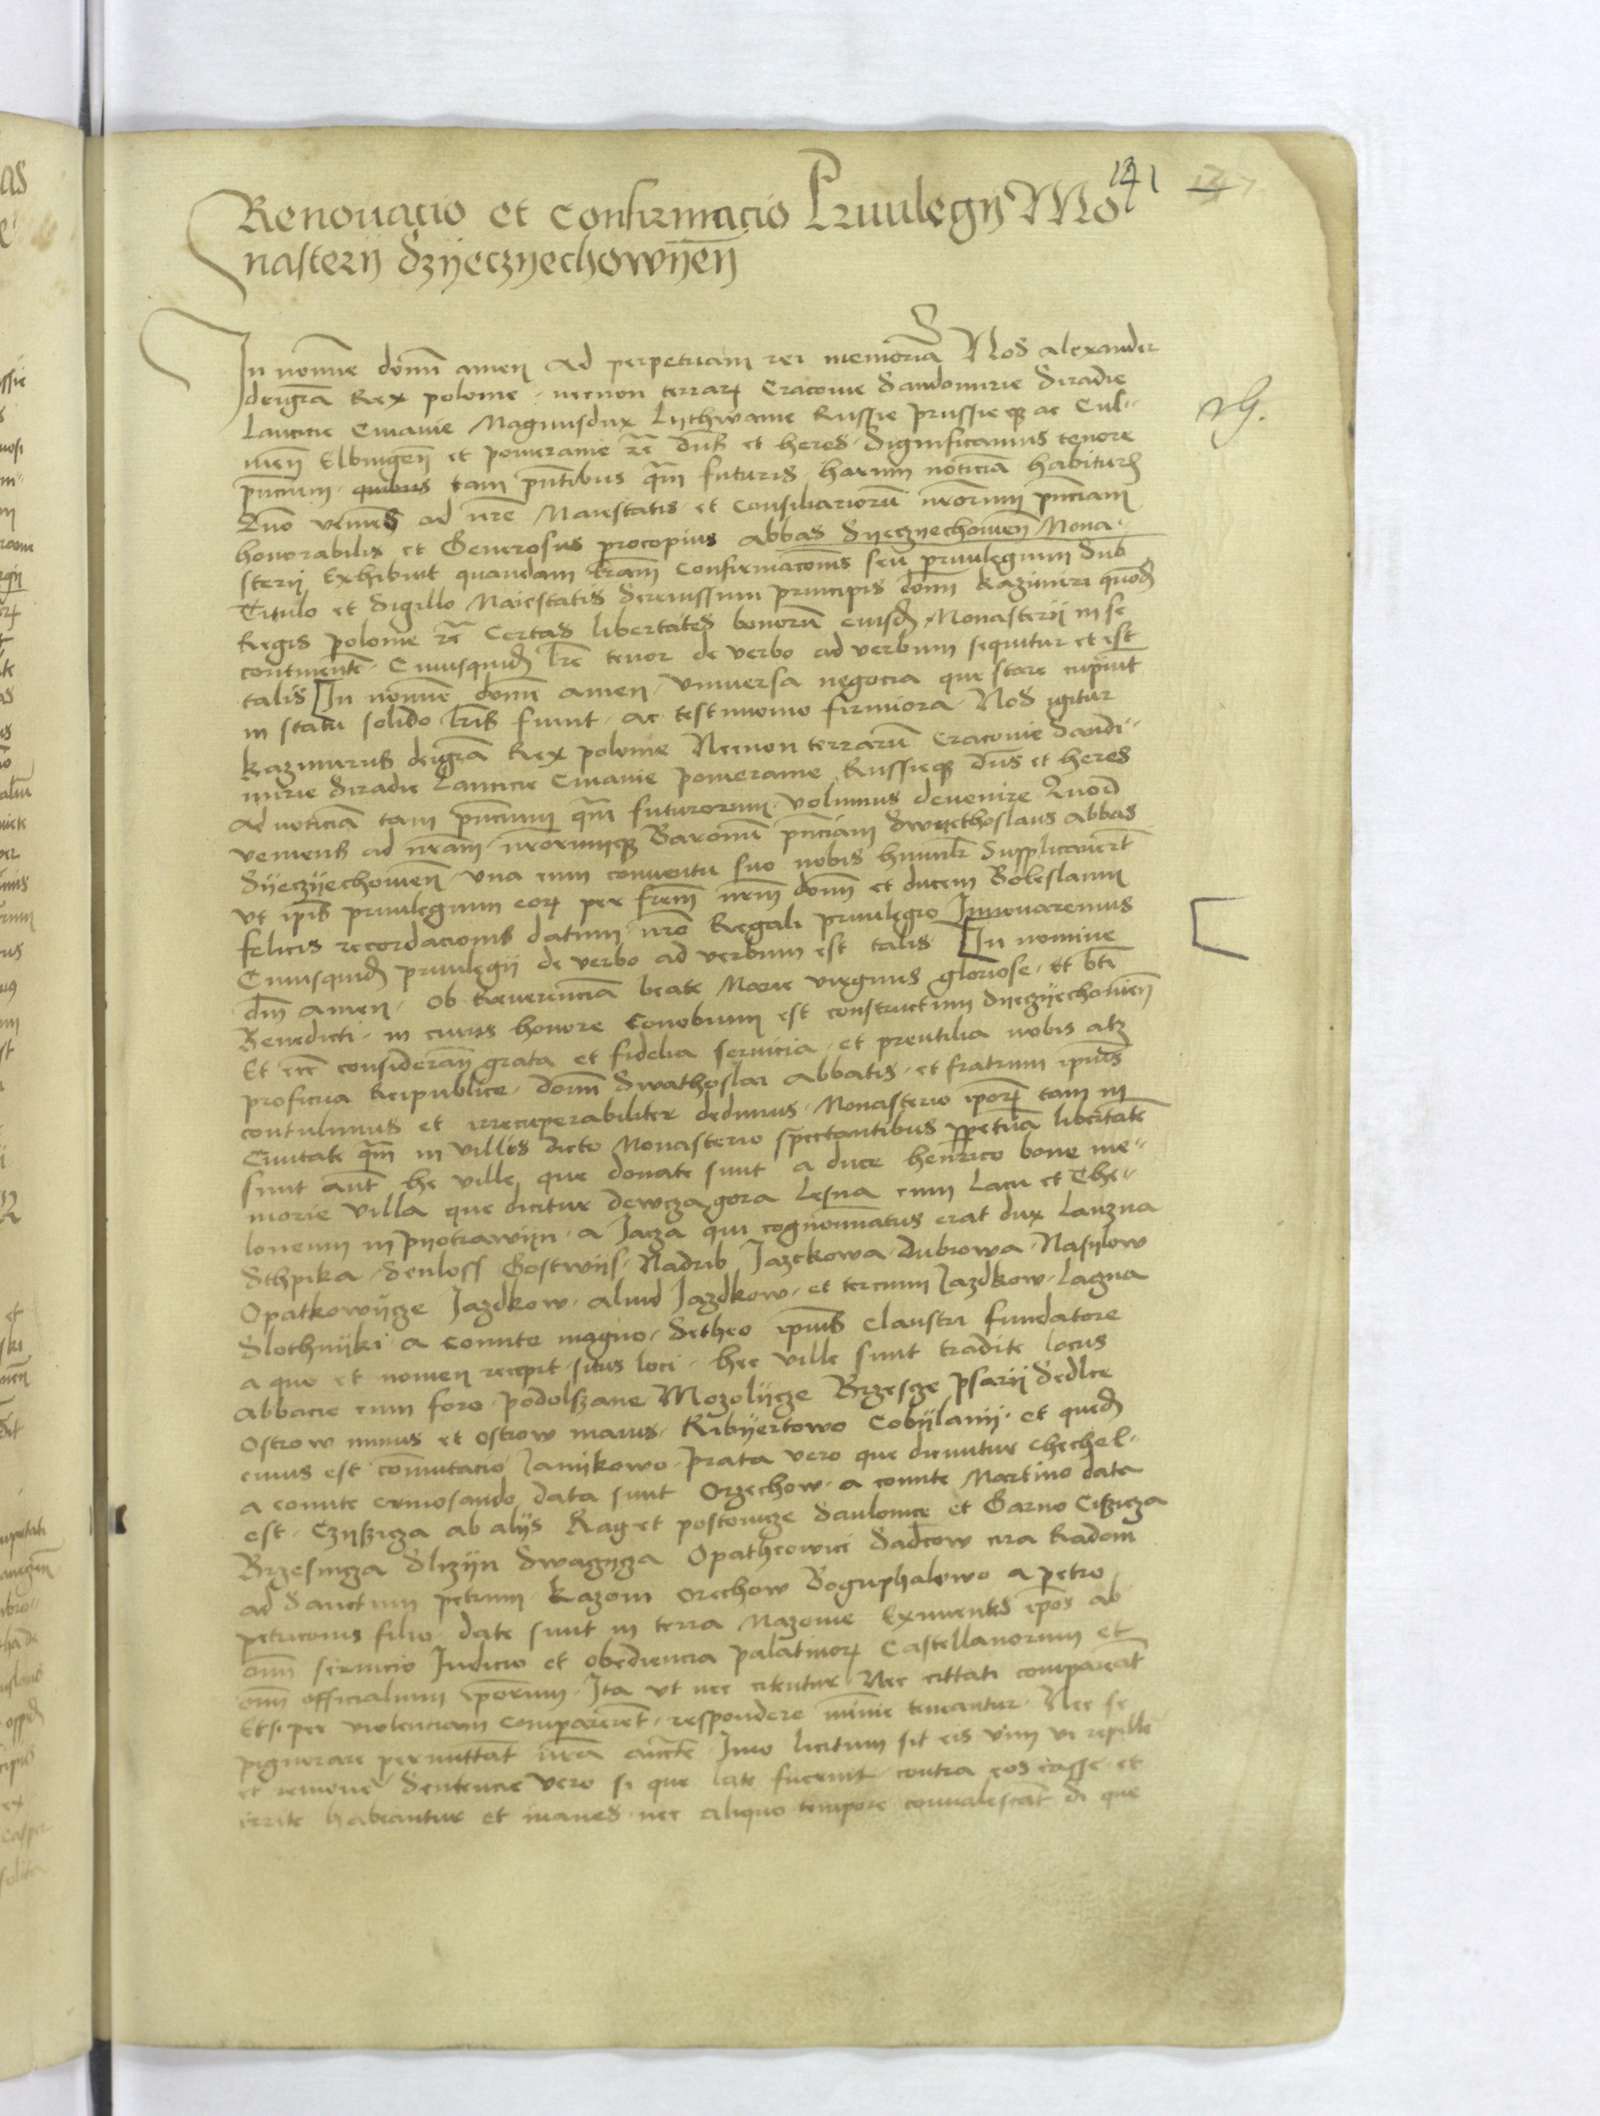 141
Renouacio et Confirmacio Priuilegij Mo
nasterij Szyeczyechowyen̄
In nomīe domī amen Ad perpetuam rei memoriā Nos Alexander
deigrā Rex polonie necnon terrarꝫ Cracouie Sandomirie Siradie
Lancicie Cuiauie Magnusdux Lythwanie Russie prussie qꝫ ac Cul-
men̄ Elbingen̄ et pomeranie zc̄ Dn̄s et heres Significamus tenore
pn̄cium quibus tam pn̄tibus qm̄ futuris harum noticiā habiturꝫ
Quō veniens ad nrē Maiestatis et Consiliariorū nrōrum pn̄ciam
honorabilis et Generosus procopius abbas Syeczyechouien̄ Mona-
sterij Exhibuit quandam lrām Confirmacoīs seu priuilegium Sub
Titulo et Sigillo Maiestatis Serenissimi principis domī kazimiri quōdꝫ
Regis polonie zc̄ Certas libertates bonorū eiusdꝫ Monasterij in se
continentē Cuiusquidꝫ lrē tenor de verbo ad verbum sequitur et est
talis [In nomīe domī amen Vniuersa negocia que stare cupiūt
in statu solido lrīs fiunt ac testimonio firmiora Nos igitur
kazimirus deigrā Rex polonie Necnon terrarū Cracouie Sandi-
mirie Siradie Lancicie Cuiauie pomeranie Russieqꝫ dn̄s et heres
Ad noticiā tam pn̄cium qm̄ futurorum volumus deuenire Quod
veniens ad nrām nrōrumqꝫ Baronū pn̄ciam Swyethoslaus abbas
Syeczyechouien̄ vna cum conuentu suo nobis humilr̄ Supplicauerūt
vt ip̄is priuilegium eorꝫ per frēm nrm̄ domī et ducem Boleslaum
felicis recordacionis datum nrō Regali priuilegio Innouaremus
Cuiusquidꝫ priuilegij de verbo ad verbum est talis [In nomine
dm̄ amen Ob Reuerenciā beate Marie virginis gloriose et bti
Benedicti in cuius honore Cenobium est constructum Syeczyechouien̄
Et ecē considerān̄ grata et fidelia seruicia et preutilia nobis atqꝫ
proficua Reipublice domī Swathoslai Abbatis et fratrum ip̄ius
contulimus et irrecuperabiliter dedimus Monasterio ip̄orꝫ tam in
Ciuitate qm̄ in villis dicto Monasterio spectantibus ꝑpetuā libertatē
sunt aūt he ville que donate sunt a duce henrico bone me-
morie villa que dicitur dewcza gora Lesna cum Lacu et The-
loneum in pyotrawyn a Jacza qui cognominatus erat dux Lauzna
Sthpika Senloss Gostwyss Nadrib Jazekowa dubrowa Nasylow
Opatkowycze Jazdkow aliud Jazdkow et tercium Jazdkow Lagna
Slothnyki a comite magno Setheo ip̄ius Claustri fundatore
a quo et nomen recepit situs loci hee ville sunt tradite locus
abbacie cum foro podolszane Mozolycze Brzescze psarij Sedlce
Ostrow minus et Ostrow maius Ribyertowo Cobylanij et quedꝫ
cuius est cōmutacio Janykowo prata vero que dicuntur chechel-
a comite ermosando data sunt Orzechow a comite Martino data
est Czyszicza ab alijs Rag et postomcze Saulonice et Garno Ciszicza
Brzesnicza Slizyn Swagycza Opatheowici Sadcow cira Radom
ad Sanctum petrum kazom Orechow Boguphalowo a petro
petriconis filio date sunt in terra Mazouie Eximentes ip̄os ab
om̄i seruicio Iudicio et obediencia palatinorꝫ Castellanorum et
om̄i officialium ip̄orum Ita vt nec citentur Nec cittati compareāt
Etsi per violenciam comparerent respondere mīme teneantur Nec se
pignorare permittāt nrā auctē Imo licitum sit eis vim vi repelle
et remoue Sentencie vero si que late fuerint contra eos casse et
irrite habeantur et inanes nec aliquo tempore conualescāt Si que